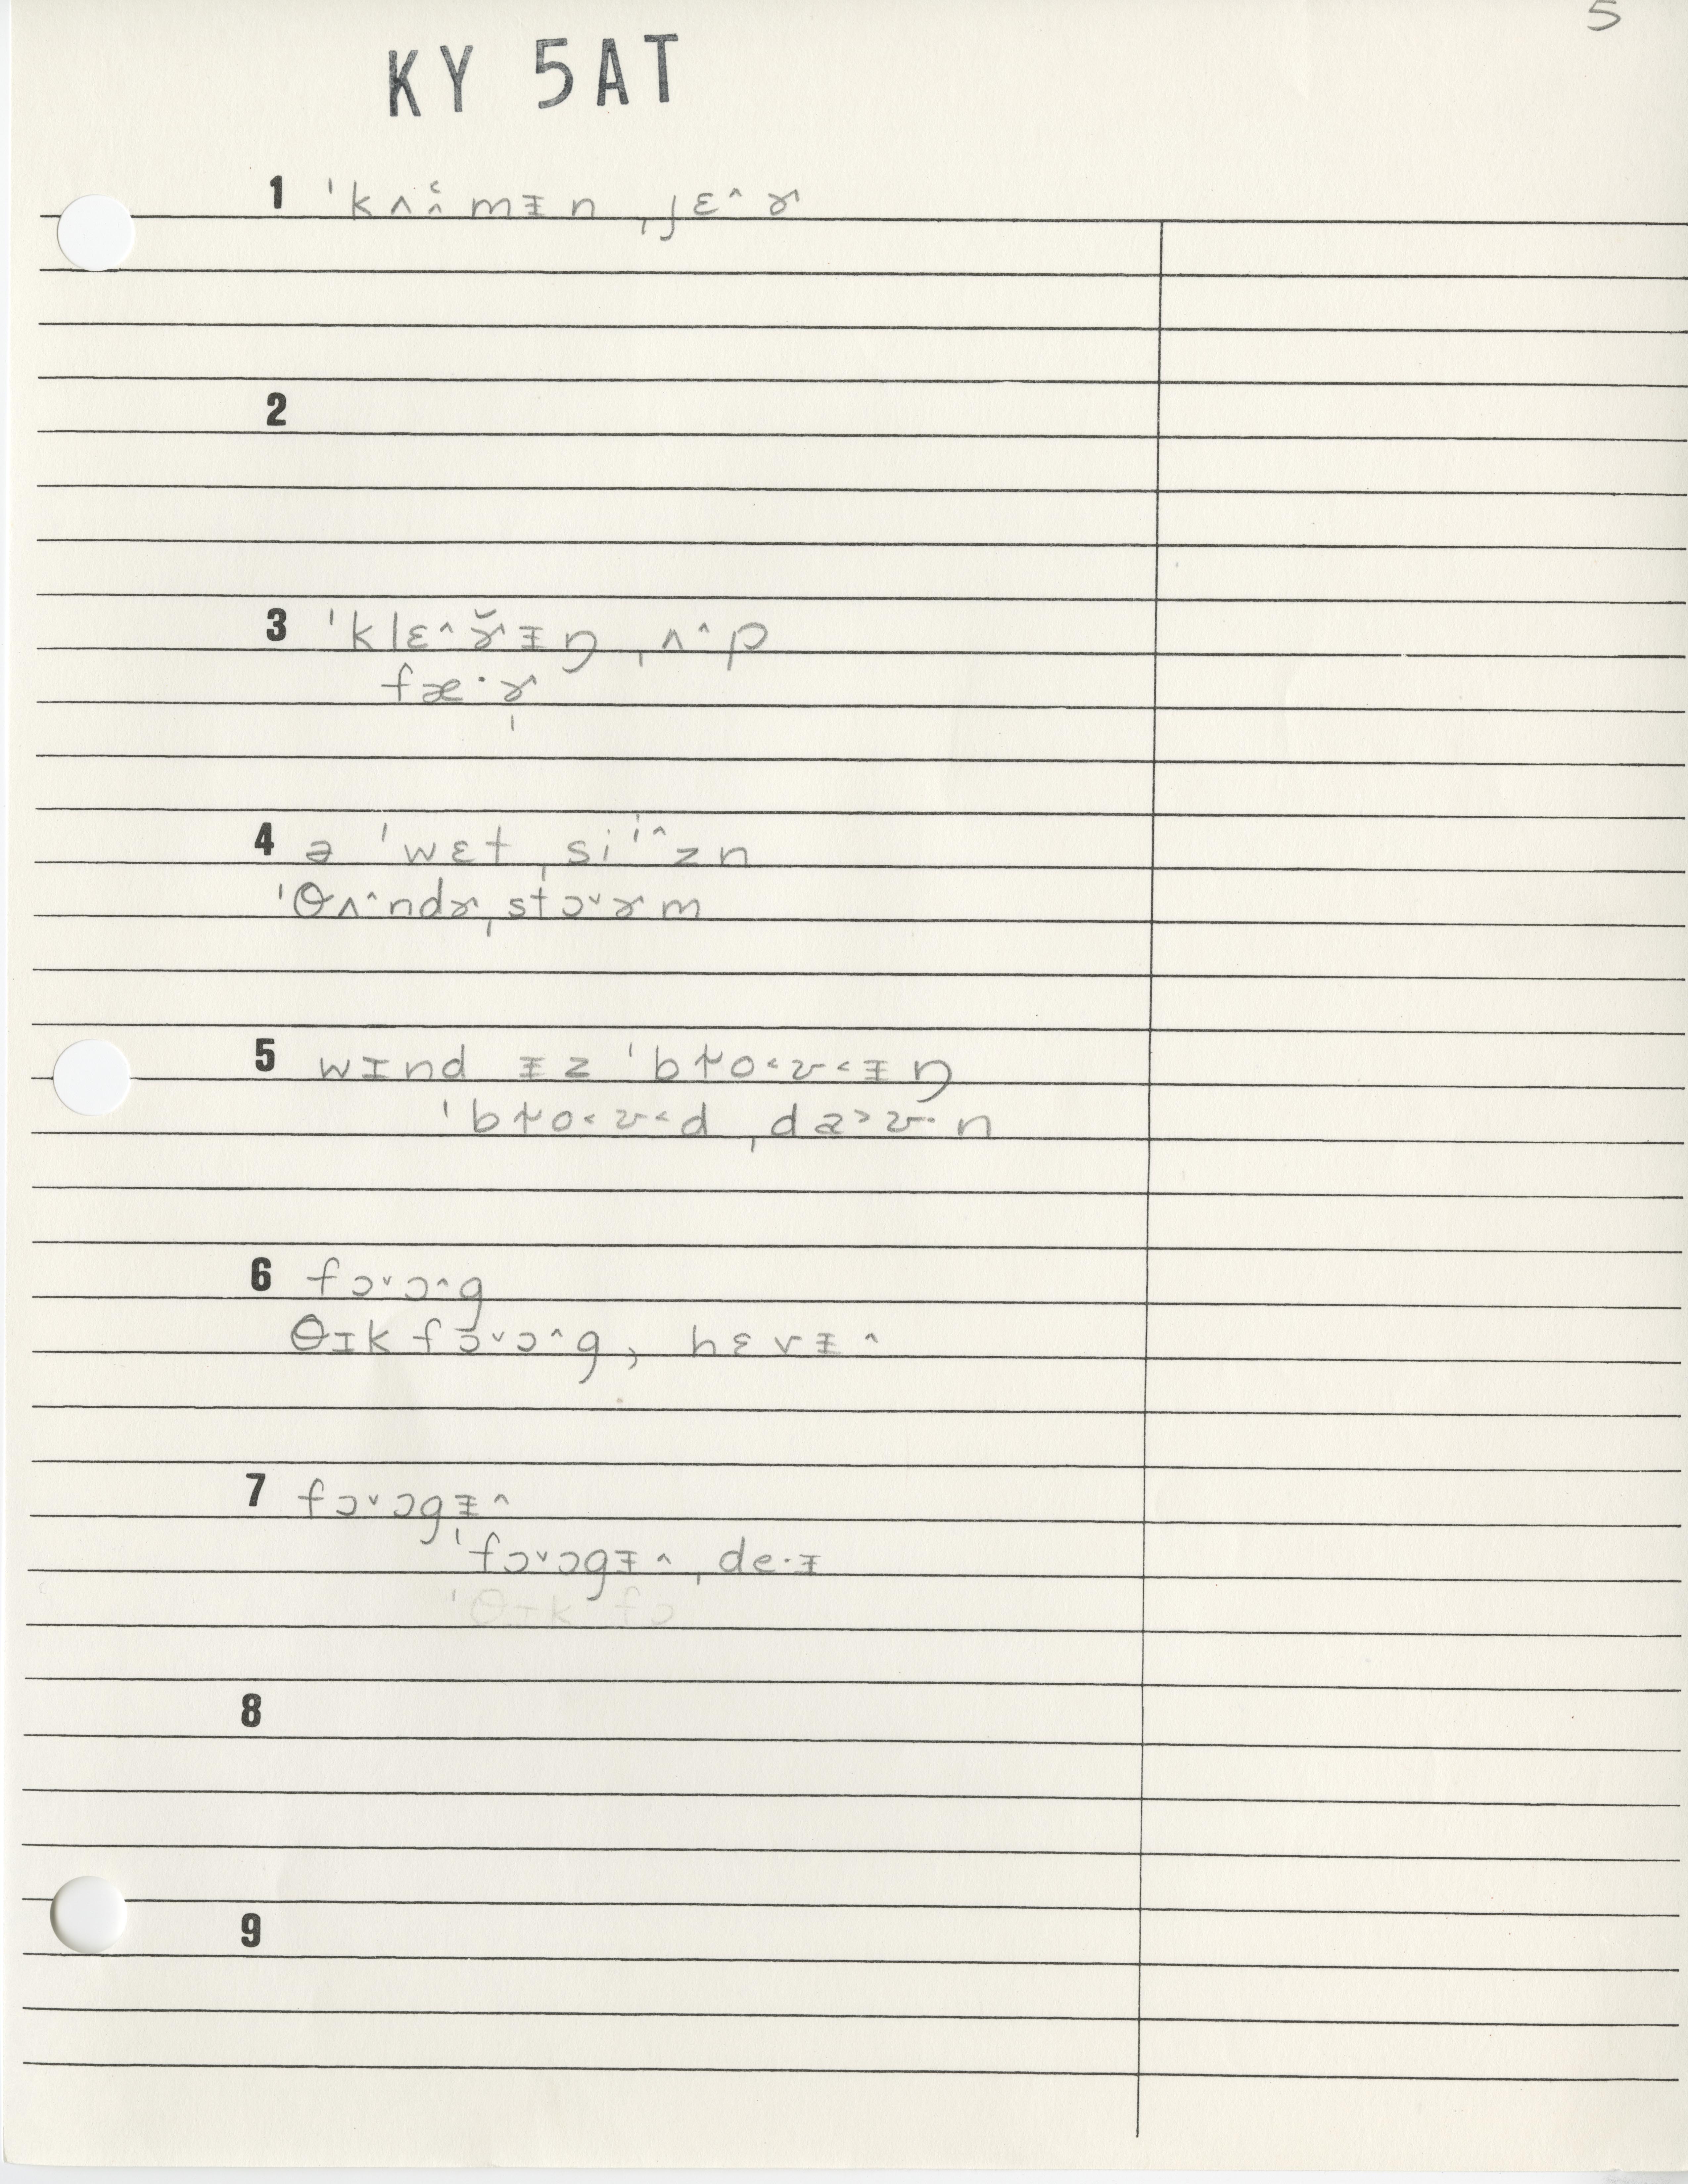 5
KY 5AT
1 ˈkʌ˄˂mᵻn ˌjɛ˄ɚ
2
3 ˈklɛ˄ɚ̆ᵻŋ ˌʌ˄p
fæ·ɚ
4 ə ˈwɛt ˌsiˈ˄zn
ˈθʌ˄ndɚˌstɔ˅ɚm
5 wɪnd ᵻz ˈbɫo˂ʊ˂ᵻŋ
ˈbɫo˂ʊ˂d ˌda˃ʊ·n
6 fɔ˅ɔ˄g
θɪk fɔ˅ɔ˄g, hɛvᵻ˄
7 fɔ˅ɔgᵻ˄
ˈfɔ˅ɔgᵻ˄ ˌde·ᵻ
ˈθɪk fɔ
8
9